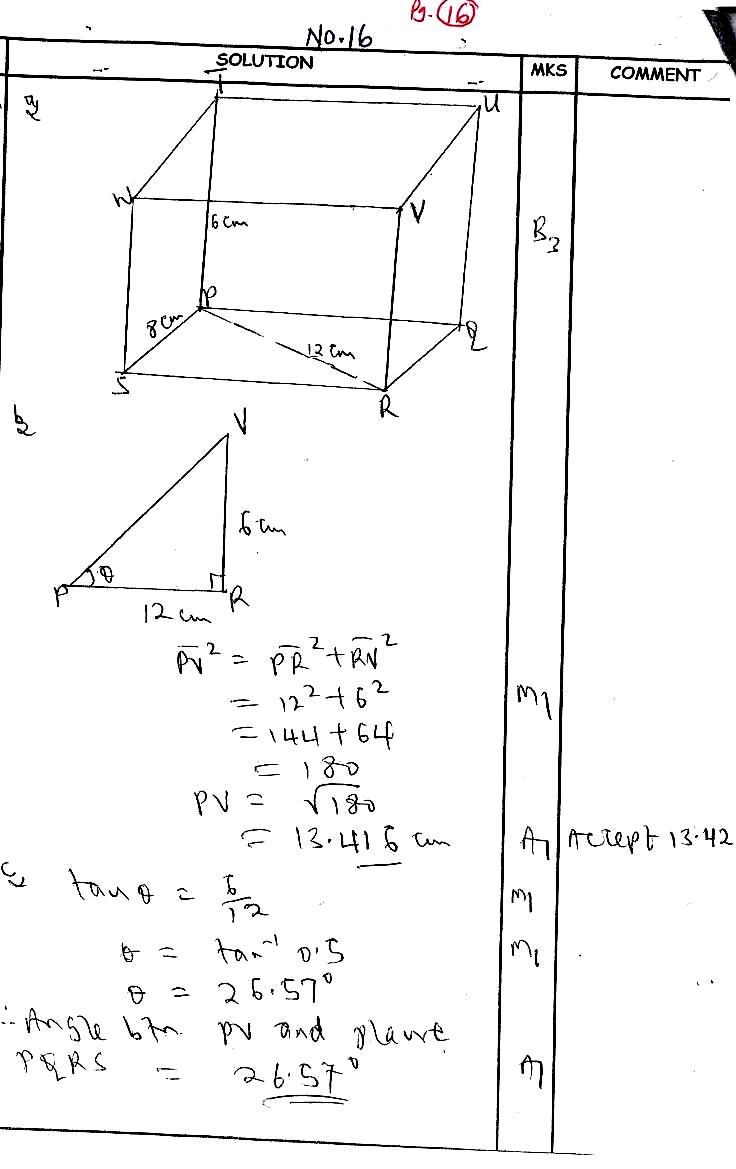 Pg. (16)
NO.16
SOLUTION MKS COMMENT
a)
T U
W V
6cm
B3
P
8cm
Q
12cm
S
R
b)
V
6cm
θ
P R
12cm
PV² = PR² + RV²
= 12² + 6² M1
= 144 + 64
= 180
PV = √180
= 13.416 cm A1 Accept 13.42
c) tan θ = 6/12 M1
θ = tan⁻¹ 0.5 M1
θ = 26.57°
∴ Angle btn PV and plane
PQRS = 26.57° A1